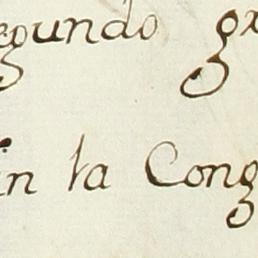 egundo gr
in la Cong